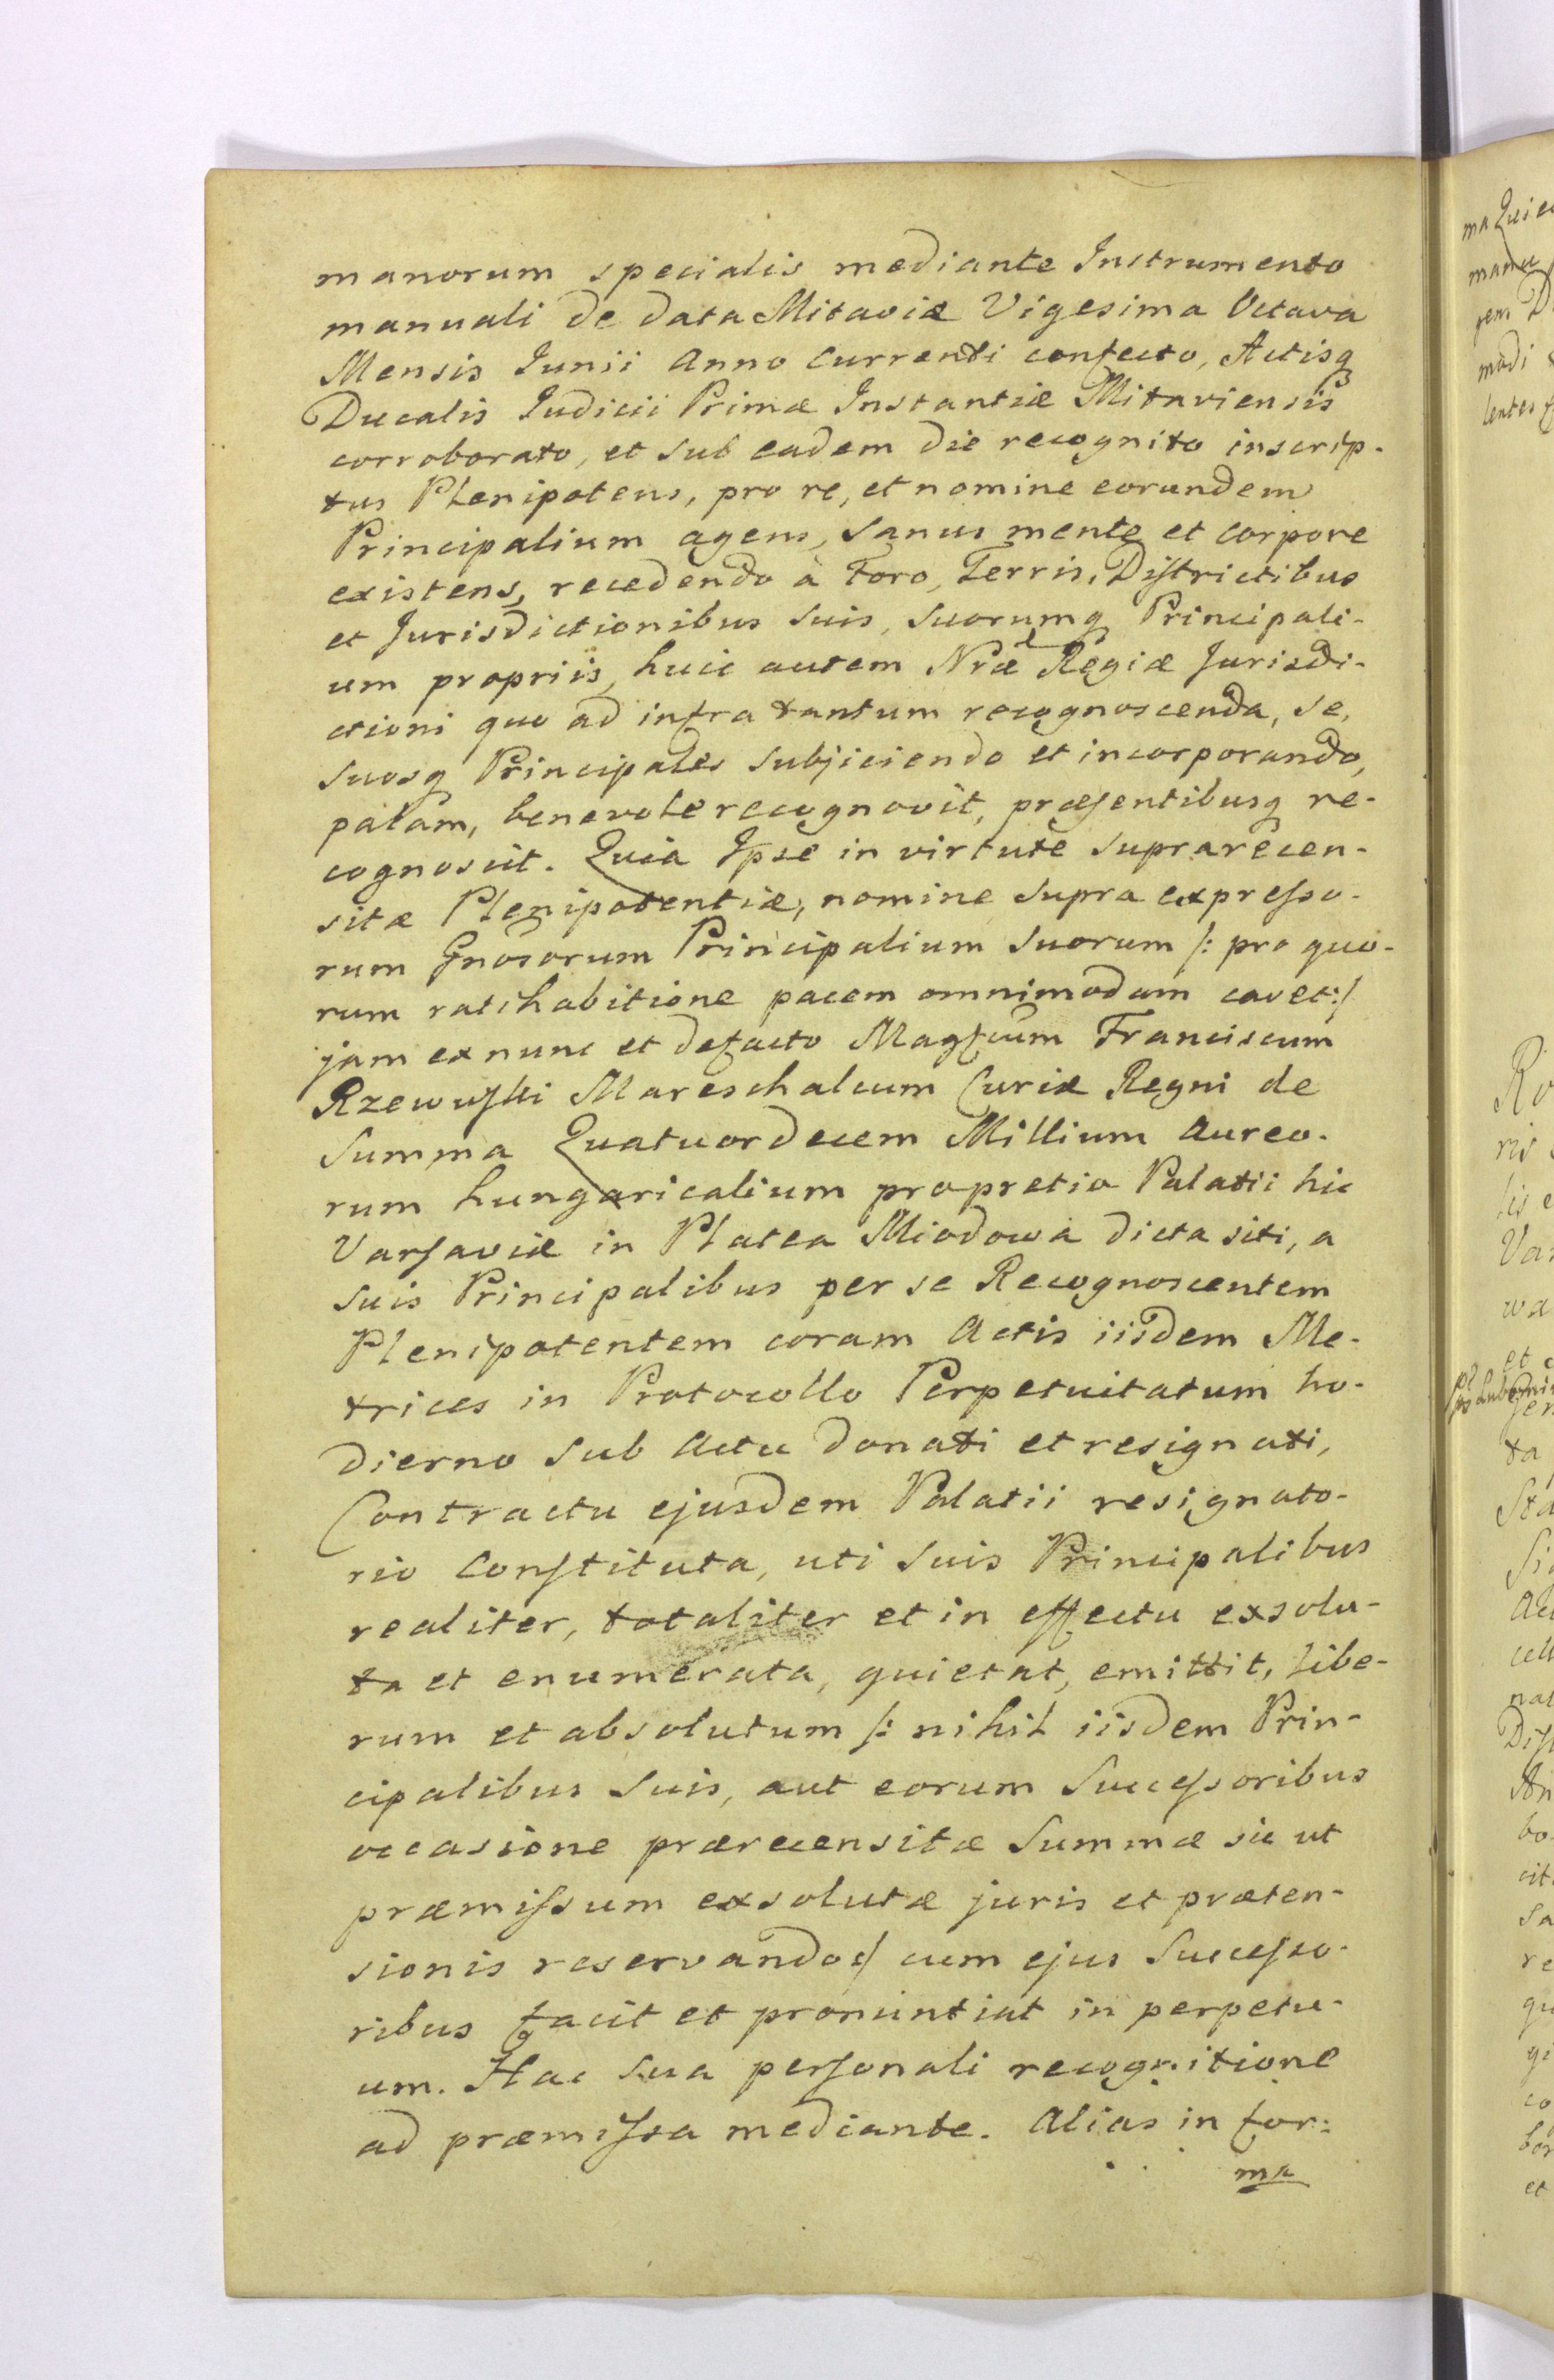 manorum specialis mediante Instrumento
manuali de data Mitaviæ Vigesima Octava
Mensis Junii Anno Currenti confecto, Actisq
Ducalis Judicii Primæ Instantiæ Mitaviensis
corroborato, et sub eadem die recognito inscrip-
tus Plenipotens, pro re, et nomine eorundem
Principalium agens, sanus mente et corpore
existens, recedendo à Foro, Terris, Districtibus
et Jurisdictionibus suis, suorumq Principali-
um propriis, huic autem Nræ Regiæ Jurisdi-
ctioni quo ad infra tantum recognoscenda, se,
suosq Principales subjiciendo et incorporando,
palam, benevole recognovit, præsentibusq re-
cognoscit. Quia Ipse in virtute suprarecen-
sitæ Plenipotentiæ, nomine supra expresso-
rum Gnosorum Principalium suorum /: pro quo-
rum ratihabitione pacem omnimodam cavet :/
jam ex nunc et defacto Magfcum Franciscum
Rzewuski Mareschalcum Curiæ Regni de
Summa Quatuordecem Millium Aureo-
rum hungaricalium pro pretio Palatii hic
Varsaviæ in Platea Miodowa dicta siti, a
suis Principalibus per se Recognoscentem
Plenipotentem coram Actis iisdem Me-
trices in Protocollo Perpetuitatum ho-
dierno sub Actu donati et resignati,
Contractu ejusdem Palatii resignato-
rio Constituta, uti suis Principalibus
realiter, totaliter et in effectu exsolu-
ta et enumerata, quietat, emittit, libe-
rum et absolutum /: nihil iisdem Prin-
cipalibus suis, aut eorum Successoribus
occasione præcensitæ Summæ sic ut
præmissum exsolutæ juris et præten-
sionis reservando :/ cum ejus Successo-
ribus facit et pronuntiat in perpetu-
um. Hac sua personali recognitione
ad præmissa mediante. Alias in for:
ma